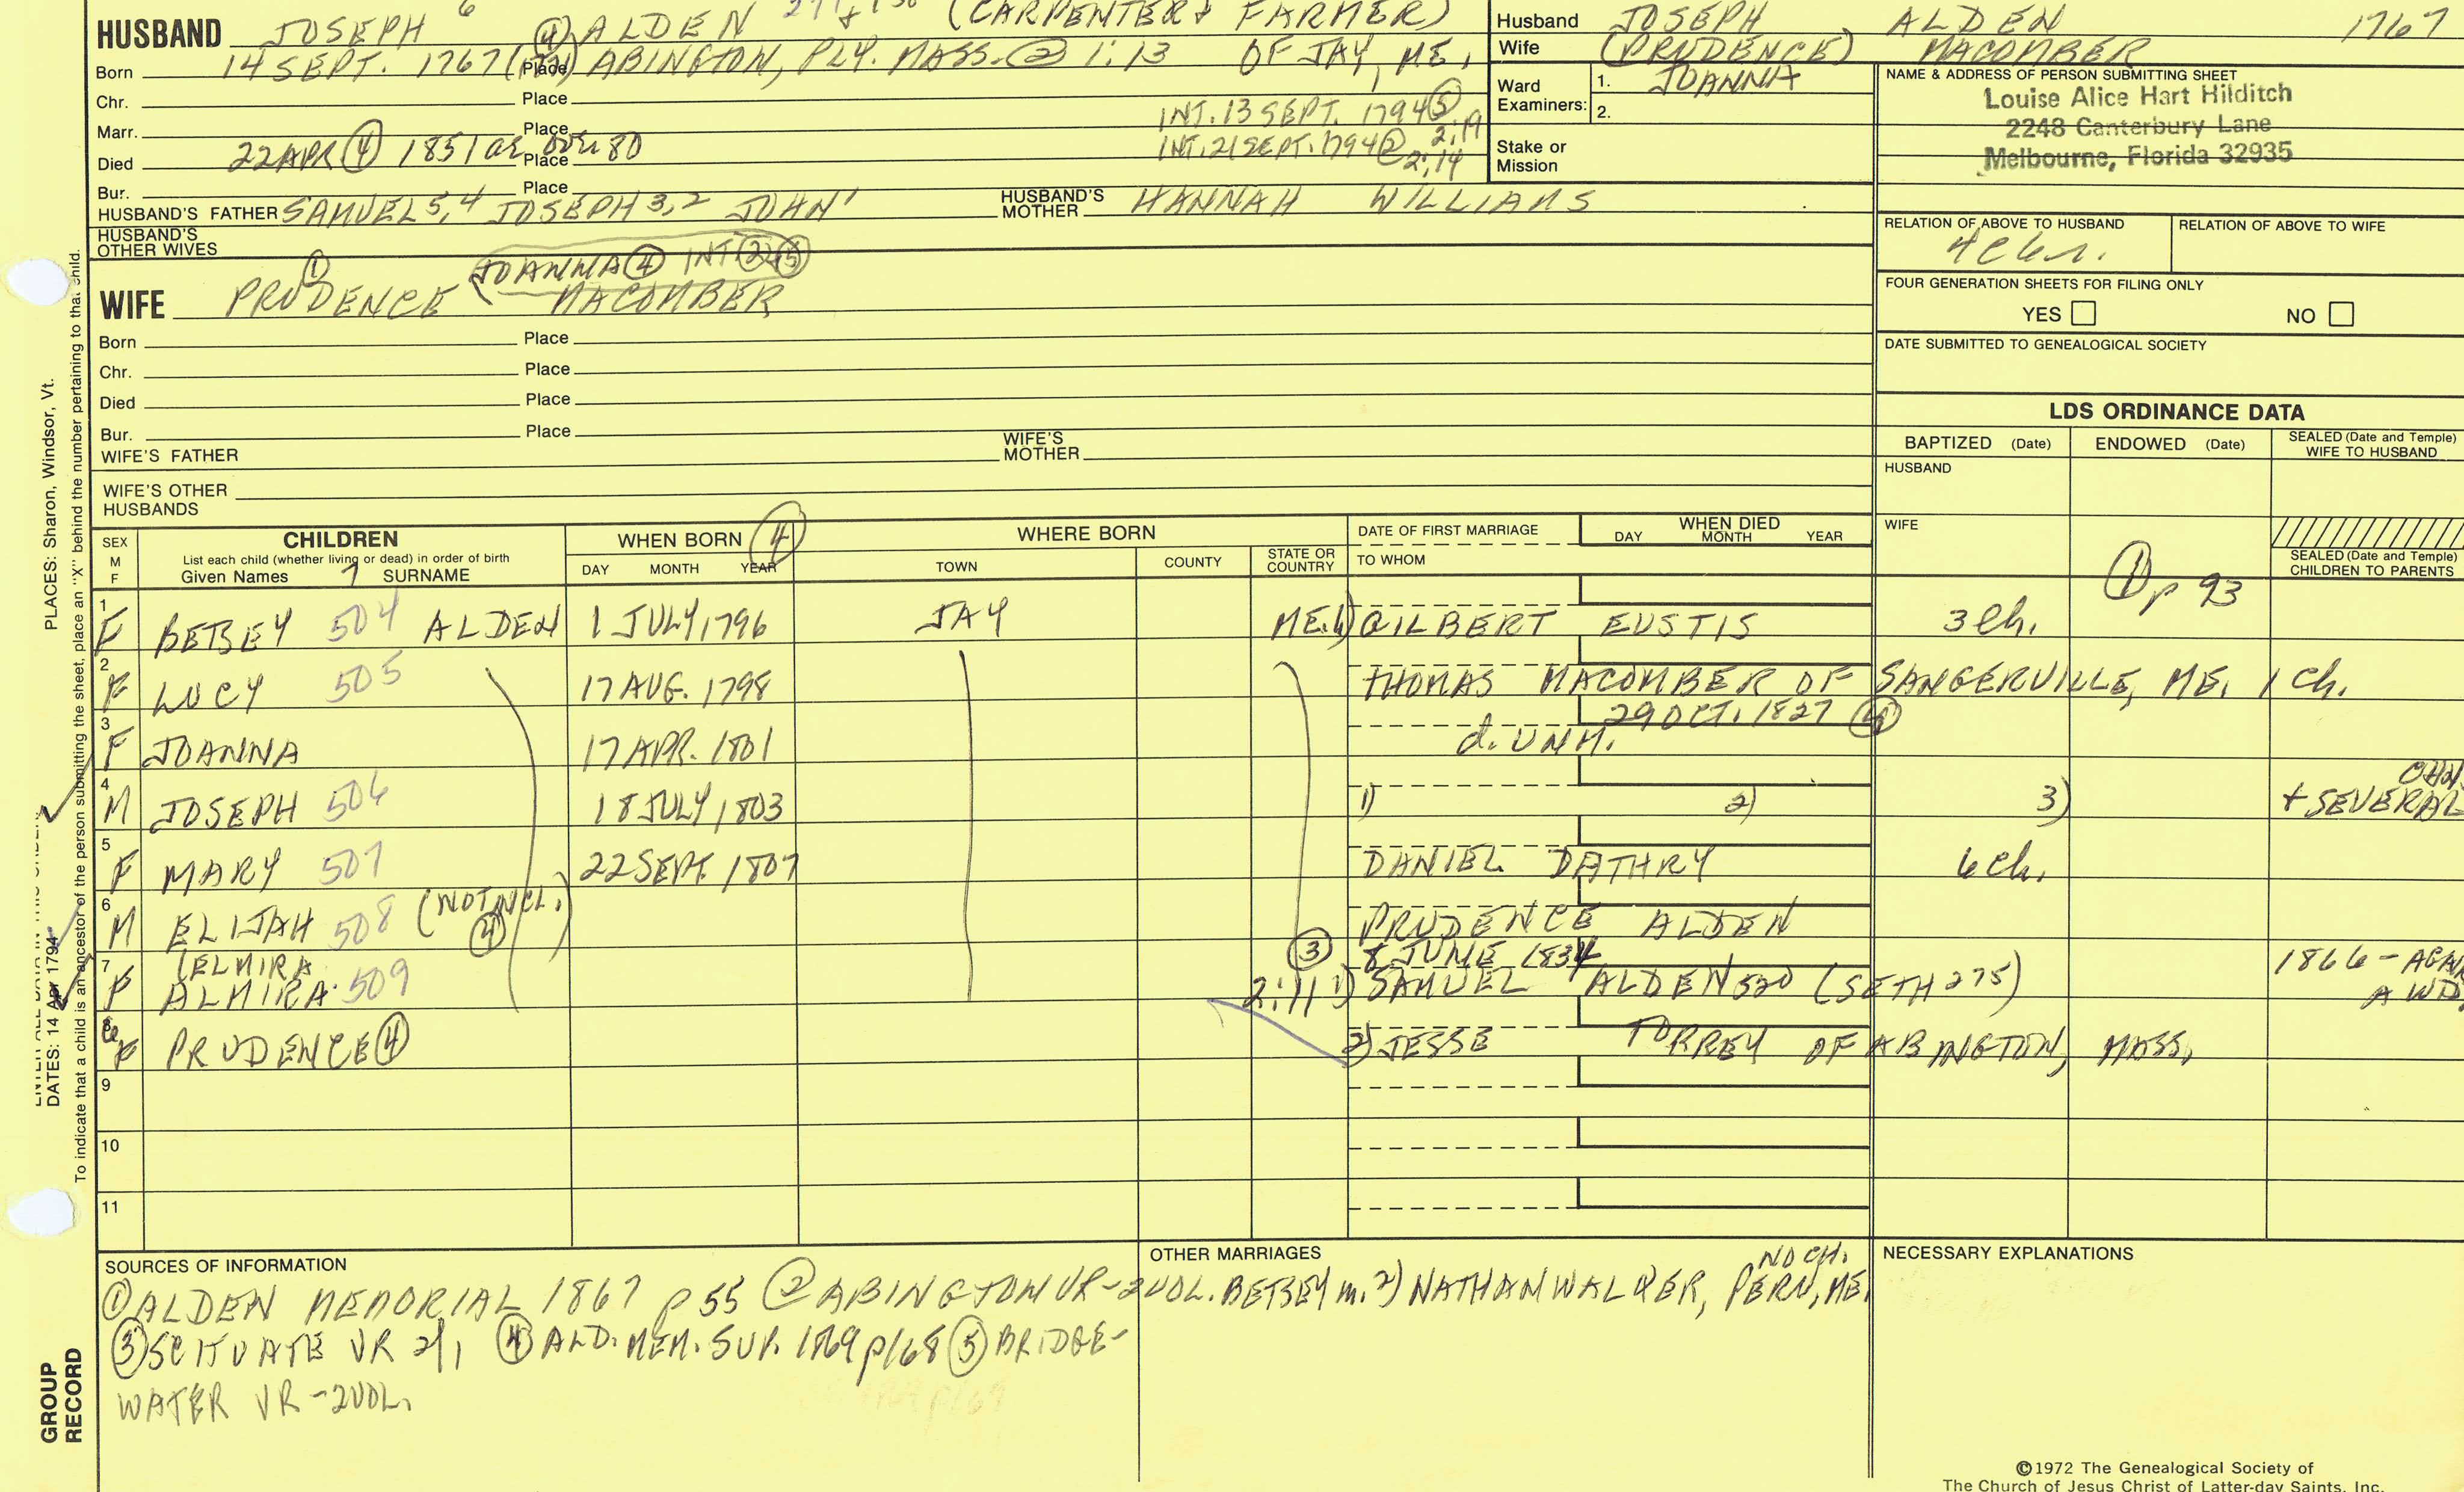 HUSBAND JOSEPH 6 ④ ALDEN (CARPENTER & FARMER)
Born 14 SEPT. 1767 Place ABINGTON, PLY. MASS. ② 1:13 OF JAY, ME.
Chr. Place
INT. 13 SEPT. 1794 ⑤ 2:19
Marr. Place
INT. 21 SEPT. 1794 ② 2:14
Died 22 APR ④ 1851 ae over 80 Place
Bur. Place
HUSBAND'S FATHER SAMUEL 5,4 JOSEPH 3,2 JOHN 1 HUSBAND'S MOTHER HANNAH WILLIAMS
HUSBAND'S OTHER WIVES
JOANNA ④ INT ② ⑤
WIFE PRUDENCE ① MACOMBER
Born Place
Chr. Place
Died Place
Bur. Place
WIFE'S FATHER WIFE'S MOTHER
WIFE'S OTHER HUSBANDS
Husband JOSEPH ALDEN 1767
Wife (PRUDENCE) MACOMBER
JOANNA
Ward Examiners: 1. 2.
Stake or Mission
NAME & ADDRESS OF PERSON SUBMITTING SHEET
Louise Alice Hart Hilditch
2248 Canterbury Lane
Melbourne, Florida 32935
RELATION OF ABOVE TO HUSBAND RELATION OF ABOVE TO WIFE
FOUR GENERATION SHEETS FOR FILING ONLY
YES NO
DATE SUBMITTED TO GENEALOGICAL SOCIETY
LDS ORDINANCE DATA
BAPTIZED (Date) ENDOWED (Date) SEALED (Date and Temple) WIFE TO HUSBAND
HUSBAND
WIFE
SEALED (Date and Temple) CHILDREN TO PARENTS
① p 93
SEX M F
CHILDREN
List each child (whether living or dead) in order of birth
Given Names 7 SURNAME
WHEN BORN ④
DAY MONTH YEAR
WHERE BORN
TOWN COUNTY STATE OR COUNTRY
DATE OF FIRST MARRIAGE
TO WHOM
WHEN DIED
DAY MONTH YEAR
1 F BETSEY 504 ALDEN 1 JULY 1796 JAY ME. 1) GILBERT EUSTIS 3 Ch.
2 F LUCY 505 17 AUG. 1798 THOMAS MACOMBER OF SANGERVILLE, ME. 1 Ch.
3 F JOANNA 17 APR. 1801 29 OCT. 1827 ④ d. UNM.
4 M JOSEPH 506 18 JULY 1803 1) 2) 3) + SEVERAL
5 F MARY 507 22 SEPT. 1807 DANIEL DATHRY 6 Ch.
6 M ELIJAH 508 (NOT INCL. ④) PRUDENCE ALDEN
7 F (ELMIRA ALMIRA 509 ③ 8 JUNE 1834 2:11 1) SAMUEL ALDEN 520 (SETH 275) 1866 -
8 F PRUDENCE ④ 2) JESSE TORREY OF ABINGTON, MASS.
9
10
11
SOURCES OF INFORMATION
① ALDEN MEMORIAL 1867 p 55 ② ABINGTON VR - 2 VOL.
③ SCITUATE VR 2/1 ④ ALD. MEM. SUP. 1869 p168 ⑤ BRIDGE-
WATER VR - 2 VOL.
OTHER MARRIAGES
NO CH.
BETSEY m. 2) NATHAN WALKER, PERU, ME.
NECESSARY EXPLANATIONS
©1972 The Genealogical Society of
The Church of Jesus Christ of Latter-day Saints, Inc.
PLACES: Sharon, Windsor, Vt.
DATES: 14 Apr 1794
To indicate that a child is an ancestor of the person submitting the sheet, place an "X" behind the number pertaining to that child.
GROUP
RECORD